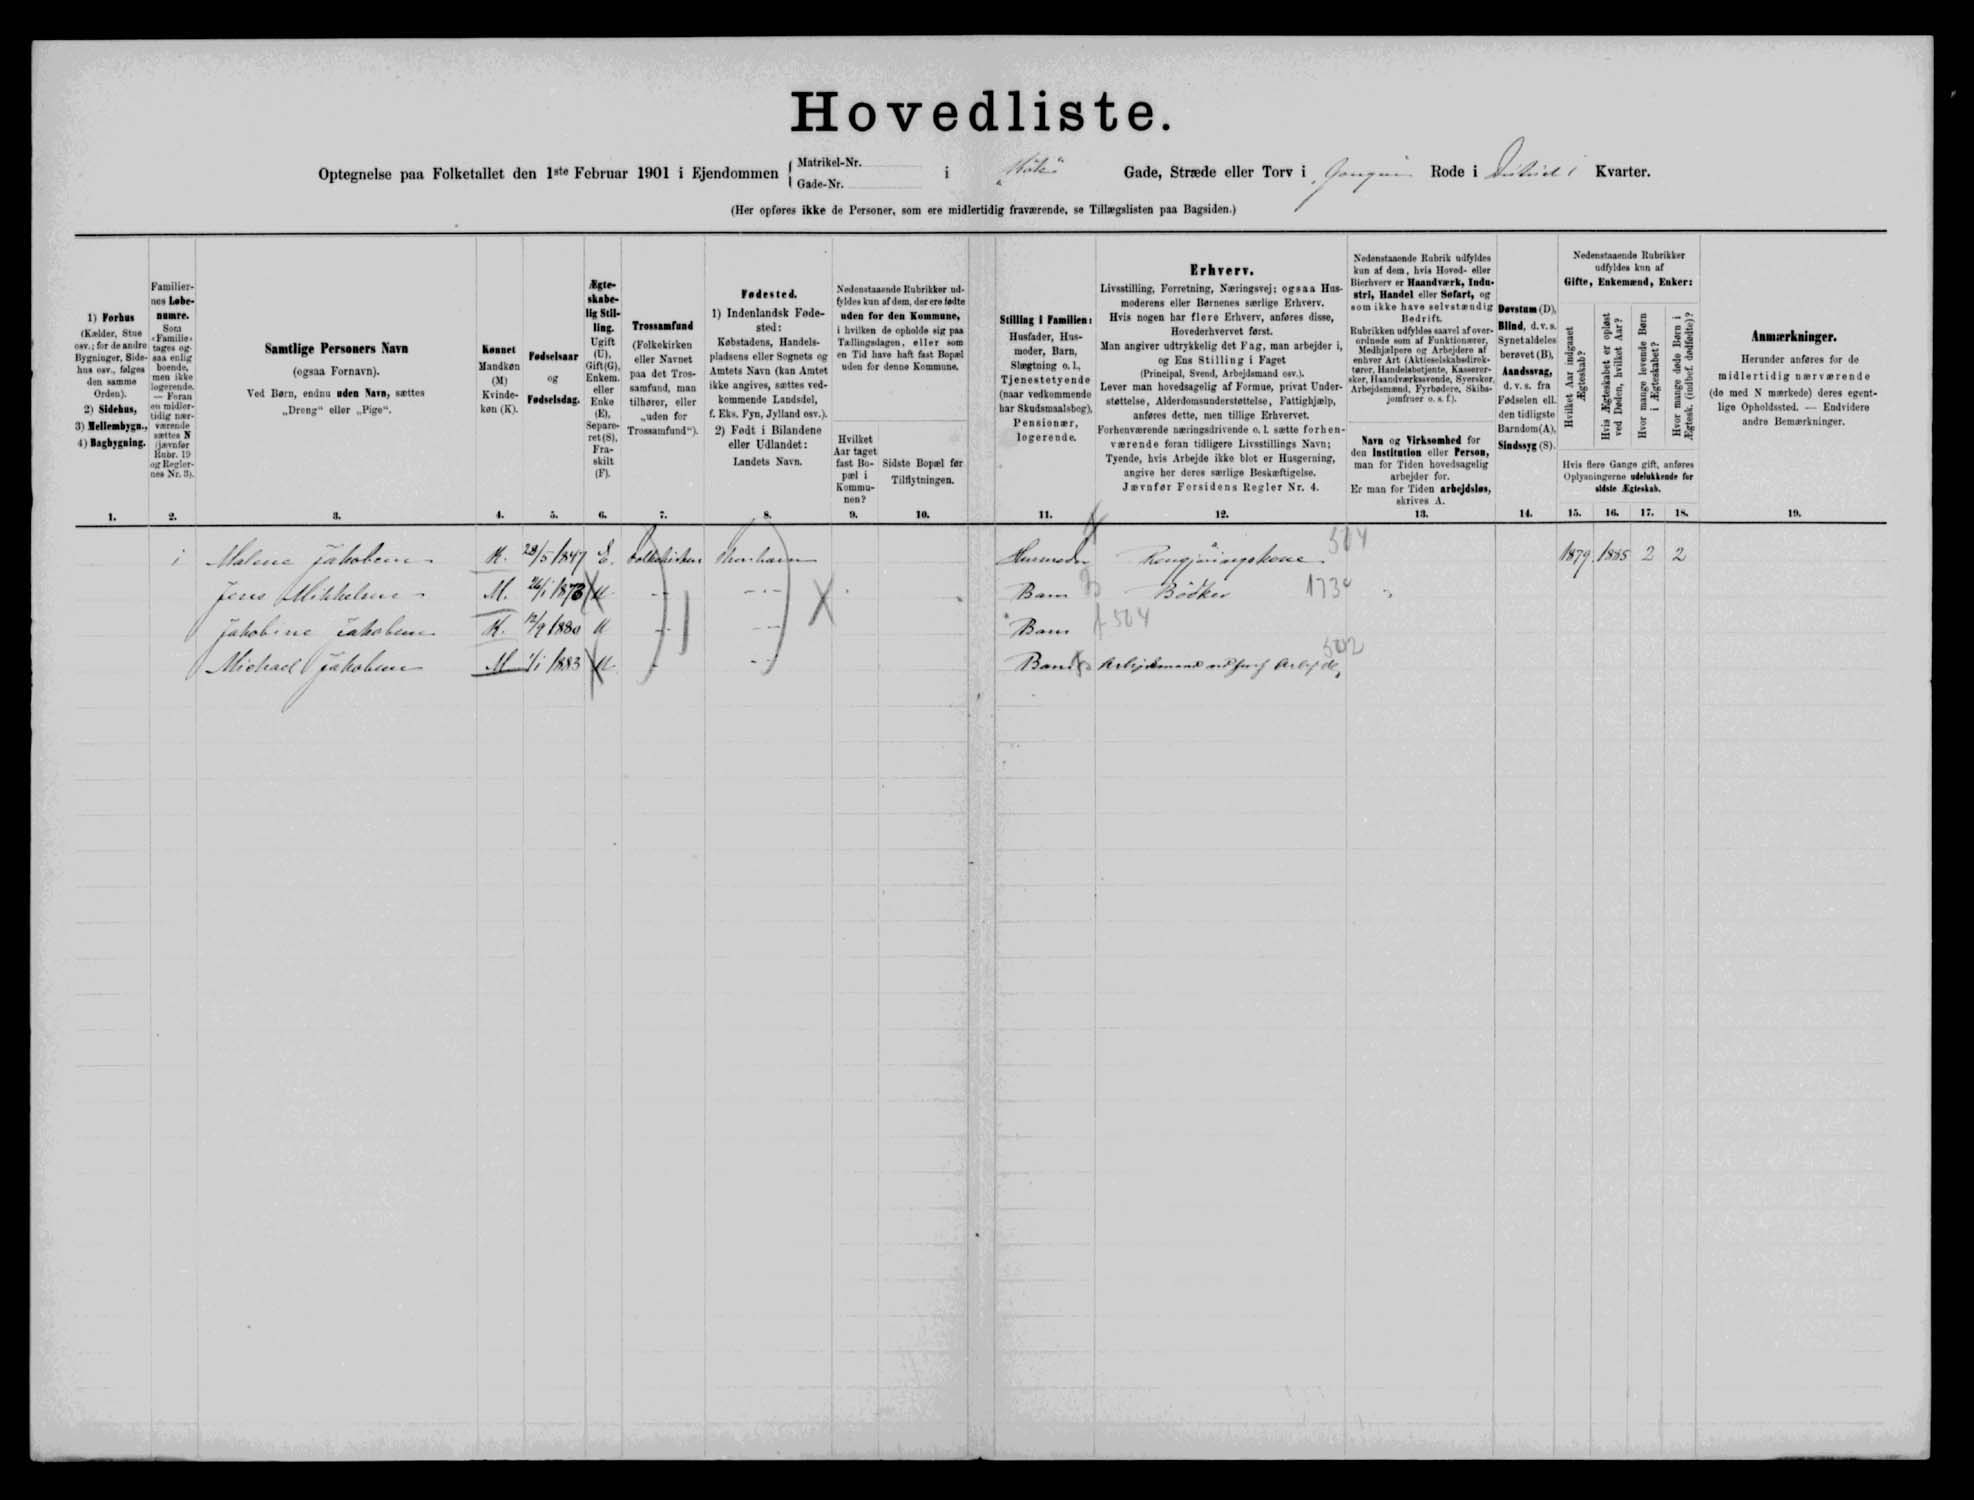 Hovedliste.
Optegnelse paa Folketallet den 1ste Februar 1901 i Ejendommen { Matrikel-Nr. Gade-Nr. i Gade, Stræde eller Torv i Rode i Distrikt 1 Kvarter.
(Her opføres ikke de Personer, som ere midlertidig fraværende, se Tillægslisten paa Bagsiden.)
1) Forhus
(Kælder, Stue
osv.; for de andre
Bygninger, Side-
hus osv., følges
den samme
Orden).
2) Sidehus,
3) Mellembygn.,
4) Bagbygning.
1.
Familier-
nes Løbe-
numre.
Som
«Familie»
tages og-
saa enlig
boende,
men ikke
logerende.
— Foran
en midler-
tidig nær-
værende
sættes N
(jævnfør
Rubr. 19
og Regler-
nes Nr. 3).
2.
Samtlige Personers Navn
(ogsaa Fornavn).
Ved Børn, endnu uden Navn, sættes
„Dreng“ eller „Pige“.
3.
Kønnet
Mandkøn
(M)
Kvinde-
køn (K).
4.
Fødselsaar
og
Fødselsdag.
5.
Ægte-
skabe-
lig Stil-
ling.
Ugift
(U),
Gift (G),
Enkem.
eller
Enke
(E),
Separe-
ret (S),
Fra-
skilt
(F).
6.
Trossamfund
(Folkekirken
eller Navnet
paa det Tros-
samfund, man
tilhører, eller
„uden for
Trossamfund“).
7.
Fødested.
1) Indenlandsk Føde-
sted:
Købstadens, Handels-
pladsens eller Sognets og
Amtets Navn (kan Amtet
ikke angives, sættes ved-
kommende Landsdel,
f. Eks. Fyn, Jylland osv.).
2) Født i Bilandene
eller Udlandet:
Landets Navn.
8.
Nedenstaaende Rubrikker ud-
fyldes kun af dem, der ere fødte
uden for den Kommune,
i hvilken de opholde sig paa
Tællingsdagen, eller som
en Tid have haft fast Bopæl
uden for denne Kommune.
Hvilket
Aar taget
fast Bo-
pæl i
Kommu-
nen?
9.
Sidste Bopæl før
Tilflytningen.
10.
Stilling i Familien:
Husfader, Hus-
moder, Barn,
Slægtning o. l.,
Tjenestetyende
(naar vedkommende
har Skudsmaalsbog),
Pensionær,
logerende.
11.
Erhverv.
Livsstilling, Forretning, Næringsvej; ogsaa Hus-
moderens eller Børnenes særlige Erhverv.
Hvis nogen har flere Erhverv, anføres disse,
Hovederhvervet først.
Man angiver udtrykkelig det Fag, man arbejder i,
og Ens Stilling i Faget
(Principal, Svend, Arbejdsmand osv.).
Lever man hovedsagelig af Formue, privat Under-
støttelse, Alderdomsunderstøttelse, Fattighjælp,
anføres dette, men tillige Erhvervet.
Forhenværende næringsdrivende o. l. sætte forhen-
værende foran tidligere Livsstillings Navn;
Tyende, hvis Arbejde ikke blot er Husgerning,
angive her deres særlige Beskæftigelse.
Jævnfør Forsidens Regler Nr. 4.
12.
Nedenstaaende Rubrik udfyldes
kun af dem, hvis Hoved- eller
Bierhverv er Haandværk, Indu-
stri, Handel eller Søfart, og
som ikke have selvstændig
Bedrift.
Rubrikken udfyldes saavel af over-
ordnede som af Funktionærer,
Medhjælpere og Arbejdere af
enhver Art (Aktieselskabsdirek-
tører, Handelsbetjente, Kasserer-
sker, Haandværkssvende, Syersker,
Arbejdsmænd, Fyrbødere, Skibs-
jomfruer o. s. f.).
Navn og Virksomhed for
den Institution eller Person,
man for Tiden hovedsagelig
arbejder for.
Er man for Tiden arbejdsløs,
skrives A.
13.
Døvstum (D),
Blind, d. v. s.
Synet aldeles
berøvet (B),
Aandssvag,
d. v. s. fra
Fødselen ell.
den tidligste
Barndom (A),
Sindssyg (S).
14.
Nedenstaaende Rubrikker
udfyldes kun af
Gifte, Enkemænd, Enker:
Hvilket Aar indgaaet Ægteskab?
Hvis Ægteskabet er opløst ved Døden, hvilket Aar?
Hvor mange levende Børn i Ægteskabet?
Hvor mange døde Børn i Ægtesk. (indbef. dødfødte)?
Hvis flere Gange gift, anføres
Oplysningerne udelukkende for
sidste Ægteskab.
15. 16. 17. 18.
Anmærkninger.
Herunder anføres for de
midlertidig nærværende
(de med N mærkede) deres egent-
lige Opholdssted. — Endvidere
andre Bemærkninger.
19.
1 Malene Jakobsen K. 28/5 1847 E. Folkekirken Thorshavn Husmoder Rengjøringskone 504 1879 1885 2 2
Jens Mikkelsen M. 26/1 1873 U. Barn Bødker 1734
Jakobine Jakobsen K. 12/9 1880 U Barn 504
Michael Jakobsen M 1/1 1883 U. Barn Arbejdsmand 502